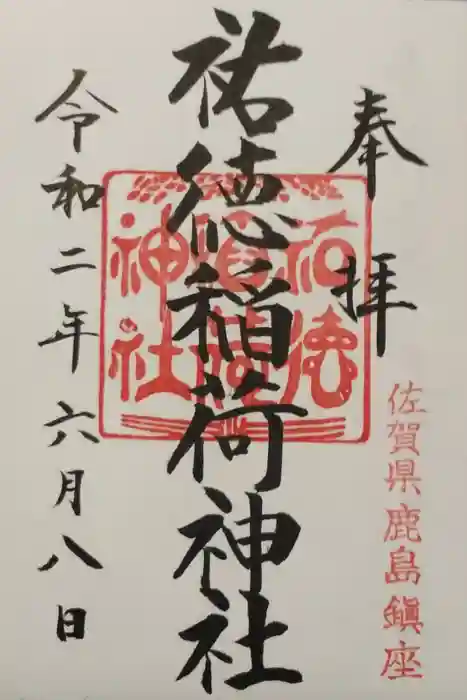 奉拝
佐賀県鹿島鎮座
祐徳稲荷神社
祐徳
稲荷
神社
令和二年六月八日